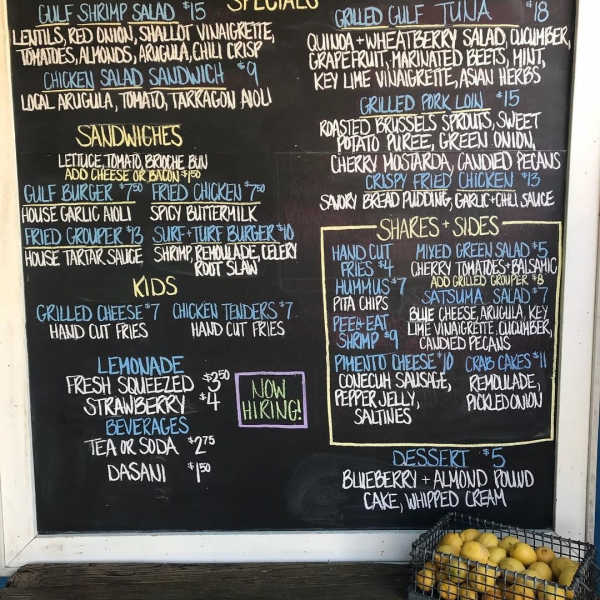 SPECIALS
GULF SHRIMP SALAD $15
LENTILS, RED ONION, SHALLOT VINAIGRETTE,
TOMATOES, ALMONDS, ARUGULA, CHILI CRISP
CHICKEN SALAD SANDWICH $9
LOCAL ARUGULA, TOMATO, TARRAGON AIOLI
GRILLED GULF TUNA $18
QUINOA + WHEATBERRY SALAD, CUCUMBER,
GRAPEFRUIT, MARINATED BEETS, MINT,
KEY LIME VINAIGRETTE, ASIAN HERBS
GRILLED PORK LOIN $15
ROASTED BRUSSELS SPROUTS, SWEET
POTATO PUREE, GREEN ONION,
CHERRY MOSTARDA, CANDIED PECANS
CRISPY FRIED CHICKEN $13
SAVORY BREAD PUDDING, GARLIC + CHILI SAUCE
SANDWICHES
LETTUCE, TOMATO, BRIOCHE BUN
ADD CHEESE OR BACON $1.50
GULF BURGER $7.50
HOUSE GARLIC AIOLI
FRIED CHICKEN $7.50
SPICY BUTTERMILK
FRIED GROUPER $13
HOUSE TARTAR SAUCE
SURF + TURF BURGER $10
SHRIMP, REMOULADE, CELERY
ROOT SLAW
KIDS
GRILLED CHEESE $7
HAND CUT FRIES
CHICKEN TENDERS $7
HAND CUT FRIES
LEMONADE
FRESH SQUEEZED $3.50
STRAWBERRY $4
BEVERAGES
TEA OR SODA $2.75
DASANI $1.50
NOW
HIRING!
SHARES + SIDES
HAND CUT
FRIES $4
HUMMUS $7
PITA CHIPS
PEEL + EAT
SHRIMP $9
PIMENTO CHEESE $10
CONECUH SAUSAGE,
PEPPER JELLY,
SALTINES
MIXED GREEN SALAD $5
CHERRY TOMATOES + BALSAMIC
ADD GRILLED GROUPER $8
SATSUMA SALAD $7
BLUE CHEESE, ARUGULA, KEY
LIME VINAIGRETTE, CUCUMBER,
CANDIED PECANS
CRAB CAKES $11
REMOULADE,
PICKLED ONION
DESSERT $5
BLUEBERRY + ALMOND POUND
CAKE, WHIPPED CREAM